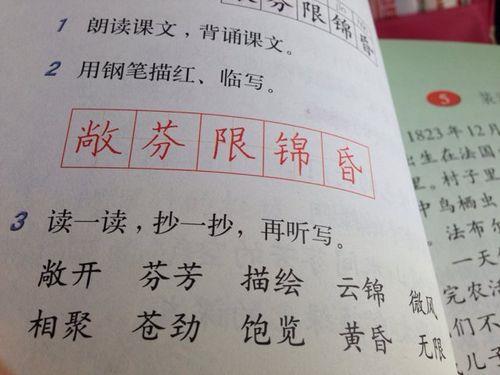 芬限锦昏
1 朗读课文，背诵课文。
2 用钢笔描红、临写。
敞芬限锦昏
3 读一读，抄一抄，再听写。
敞开 芬芳 描绘 云锦 微风
相聚 苍劲 饱览 黄昏 无限
5
1823年12月
出生在法国
里。村子里
中鸟栖虫
。法布尔
一天
完农活
们不
儿子